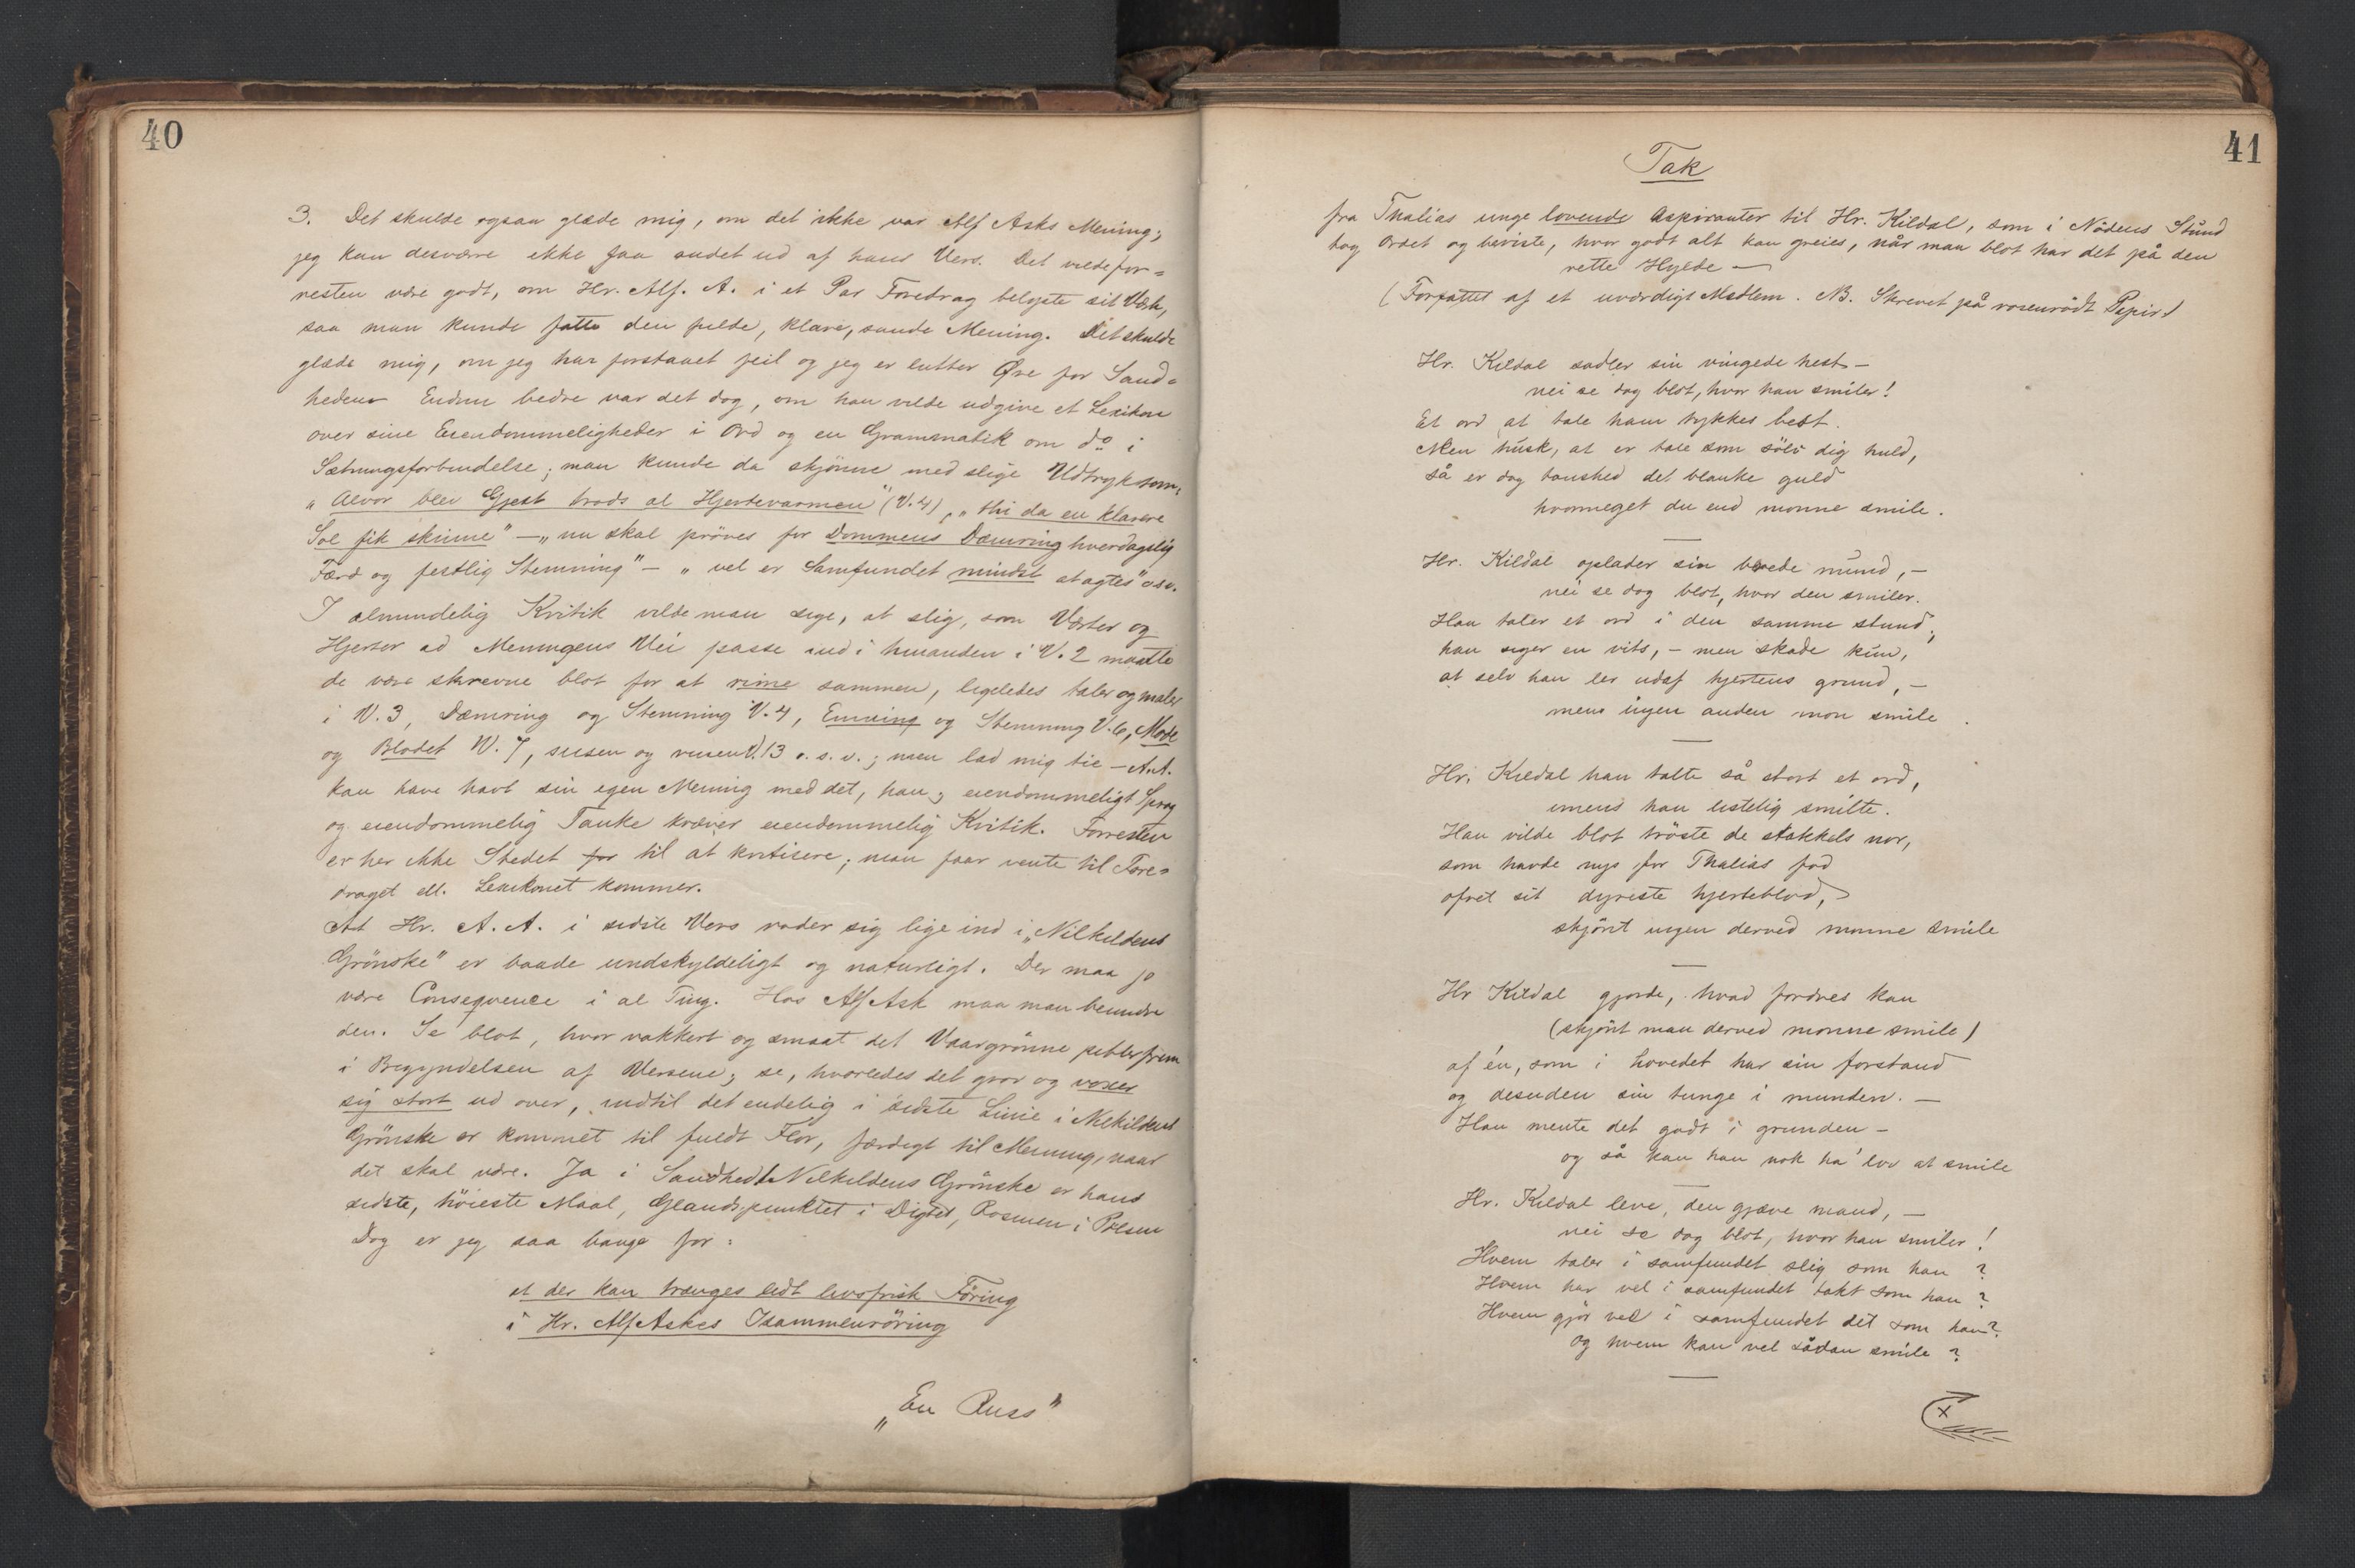 40
3. Det skulde ogsaa glæde mig, om det ikke var Alf Asks Mening;
jeg kan desværre ikke faa andet ud af hans Vers. Det vilde for=
resten være godt, om Hr. Alf. A. i et Par Foredrag belyste sit Værk,
saa man kunde fatte den fulde, klare, sunde Mening. Det skulde
glæde mig, om jeg har forstaaet feil og jeg er lutter Øre for Sand=
heden. Endnu bedre var det dog, om han vilde udgive et Lexikon
over sine Eiendommeligheder i Ord og en Grammatik om do i
Sætningsforbindelse; man kunde da skjønne med slige Udtryk som:
"Alvor blev Gjest trods al Hjertevarmen" (V.4), "thi da en klarere
Sol fik skinne" — "nu skal pröves for Dommens Dæmring hverdagslig
Færd og festlig Stemning" — "vel er Samfundet mindst at agtes" osv.
I almindelig Kritik vilde man sige, at slig, som Værter og
Hjerter ad Meningens Vei passe ind i hinanden i V.2 maatte
de være skrevne blot for at rime sammen, ligeledes taler og maler
i V.3, Dæmring og Stemning V.4, og Stemning V.6, Mode
og Blodet V.7, susen og rusen V.13 o.s.v.; men lad mig tie — A.A.
kan have havt sin egen Mening med det, han; eiendommeligt Sprog
og eiendommelig Tanke kræver eiendommelig Kritik. Forresten
er her ikke Stedet for til at kritisere; man faar vente til Fore=
draget ell. Lexikonet kommer.
At Hr. A. A. i sidste Vers vader sig lige ind i "Nilkildens
Grönske" er baade undskyldeligt og naturligt. Der maa jo
være Conseqvence i al Ting. Hos Alf Ask maa man beundre
den. Se blot, hvor vakkert og smaat det Vaargrönne pibler frem
i Begyndelsen af Versene; se, hvorledes det gror og voxer
sig stort ud over, indtil det endelig i sidste Linie i Nilkildens
Grönske er kommet til fuldt Flor, færdigt til Mening, naar
det skal være. Ja i Sandhed! Nilkildens Grönske er hans
sidste, höieste Maal, Glandspunktet i Digtet, Rosinen i Pölsen
Dog er jeg saa bange for:
at der kan trænges lidt livsfrisk Föring
i Hr. Alf Askes Isammenröring
"En Russ"
41
Tak
fra Thalias unge lovende Aspiranter til Hr. Kildal, som i Nödens Stund
tog Ordet og beviste, hvor godt alt kan greies, når man blot har det på den
rette Hylde —
(Forfattet af et uværdigt Medlem. NB. Skrevet på rosenrödt Papir)
Hr. Kildal sadler sin vingede hest —
nei se dog blot, hvor han smiler!
Et ord at tale ham tykkes best.
Men husk, at er tale som sölv dig huld,
så er dog taushed det blanke guld
hvormeget du end monne smile.
Hr. Kildal oplader sin brede mund, —
nei se dog blot, hvor den smiler.
Han taler et ord i den samme stund;
han siger en vits, — men skade kun,
at selv han ler udaf hjertens grund, —
mens ingen anden mon smile.
Hr. Kildal han talte så stort et ord,
imens han listelig smilte.
Han vilde blot tröste de stakkels nor,
som havde nys for Thalias fod
ofret sit dyreste hjerteblod,
skjönt ingen derved monne smile
Hr Kildal gjorde, hvad fordres kan
(skjönt man derved monne smile)
af én, som i hovedet har sin forstand
og desuden sin tunge i munden. —
Han mente det godt i grunden —
og så kan han nok ha' lov at smile
Hr. Kildal leve, den gjæve mand, —
nei se dog blot, hvor han smiler!
Hvem taler i samfundet slig som han?
Hvem har vel i samfundet takt som han?
Hvem gjör vel i samfundet dit som han?
Og hvem kan vel sådan smile?